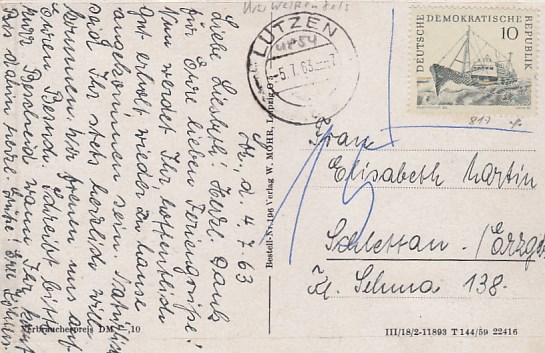 Krs. Weißenfels
LÜTZEN
-5.7.63.-7
DEUTSCHE DEMOKRATISCHE REPUBLIK
10
819
St., d. 4.7.63
Liebe Liesbeth! Herzl. Dank
für Eure lieben Feriengrüße!
Nun werdet Ihr hoffentlich
gut erholt wieder zu Hause
angekommen sein. Natürlich
seid Ihr stets herzlich will-
kommen. Wir freuen uns auf
Euren Besuch. Schreibt bitte
kurz Bescheid wann Ihr kommt
Bis dahin herzl. Grüße! Eure
Bestell-Nr. 196 Verlag W. MOHR, Leipzig
Frau
Elisabeth Martin
Schlettau /Erzgeb.
Kl. Sehma 138.
Verbraucherpreis DM -,10
III/18/2-11893 T 144/59 22416